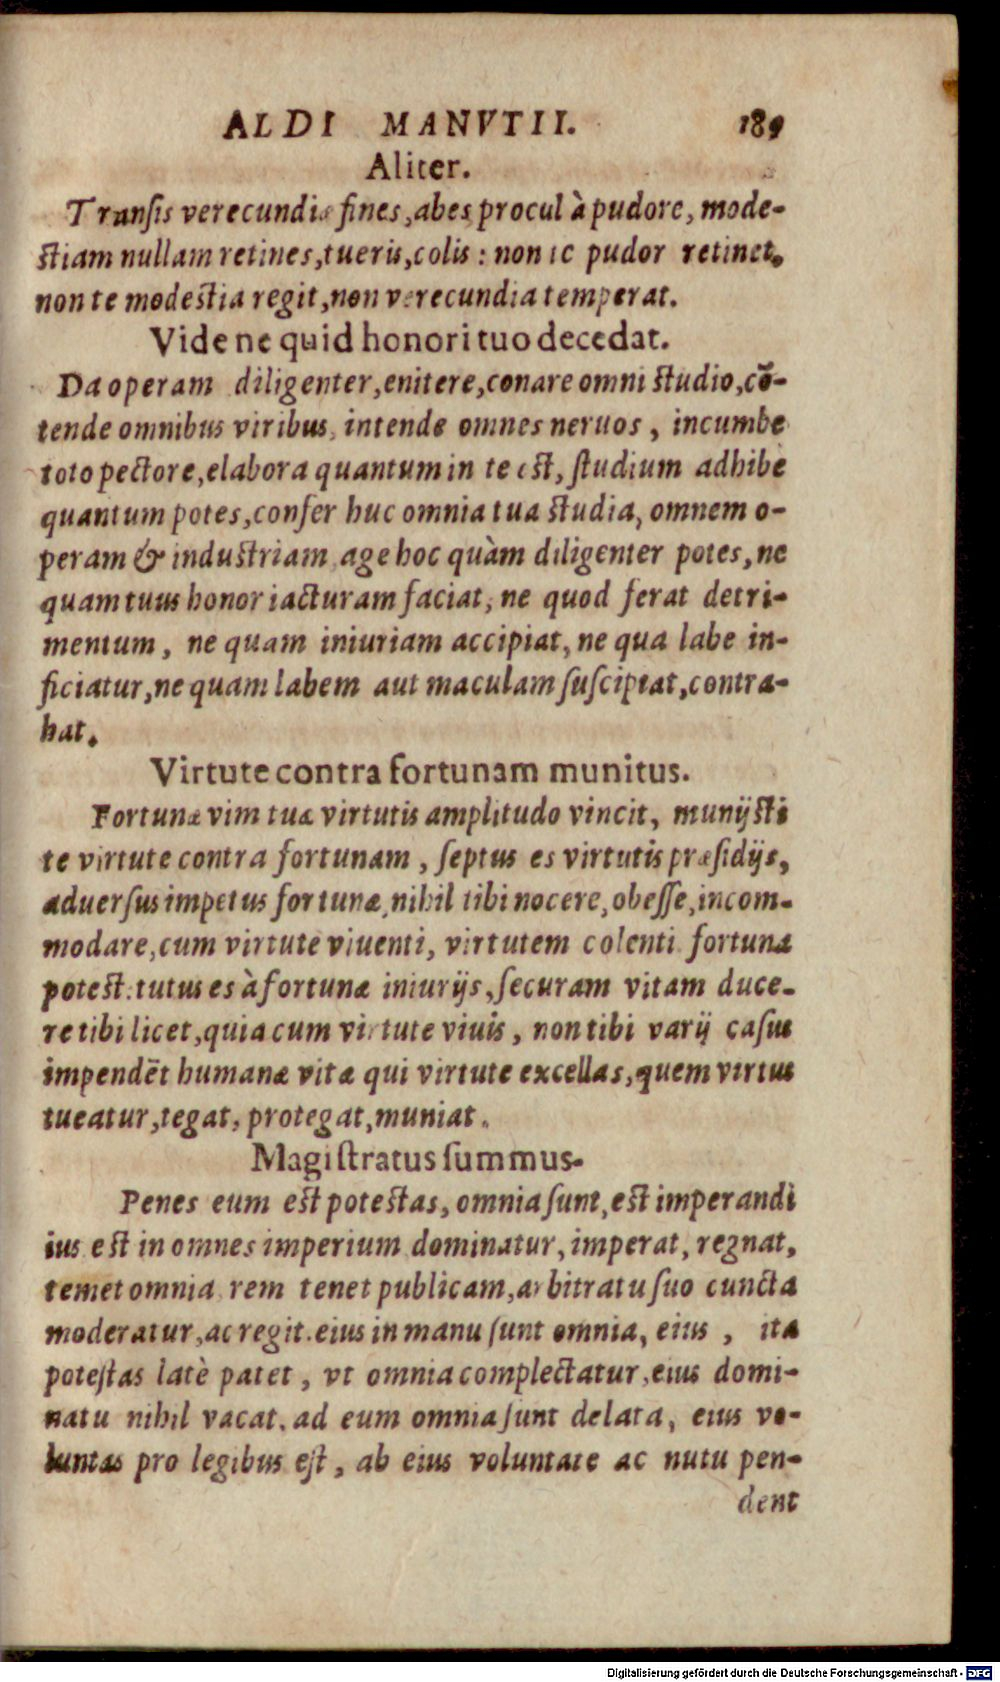 ALDI MANVTII. 189
Aliter.
Transis verecundiæ fines, abes procul à pudore, mode-
stiam nullam retines, tueris, colis: non te pudor retinet,
non te modestia regit, non verecundia temperat.
Vide ne quid honori tuo decedat.
Da operam diligenter, enitere, conare omni studio, cō-
tende omnibus viribus, intende omnes neruos, incumbe
toto pectore, elabora quantum in te est, studium adhibe
quantum potes, confer huc omnia tua studia, omnem o-
peram & industriam, age hoc quàm diligenter potes, ne
quam tuus honor iacturam faciat, ne quod ferat detri-
mentum, ne quam iniuriam accipiat, ne qua labe in-
ficiatur, ne quam labem aut maculam suscipiat, contra-
hat.
Virtute contra fortunam munitus.
Fortunæ vim tuæ virtutis amplitudo vincit, munijsti
te virtute contra fortunam, septus es virtutis præsidijs,
aduersus impetus fortunæ, nihil tibi nocere, obesse, incom-
modare, cum virtute viuenti, virtutem colenti fortuna
potest: tutus es à fortunæ iniurijs, securam vitam duce-
re tibi licet, quia cum virtute viuis, non tibi varij casus
impendēt humanæ vitæ qui virtute excellas, quem virtus
tueatur, tegat, protegat, muniat.
Magistratus summus.
Penes eum est potestas, omnia sunt, est imperandi
ius est in omnes imperium dominatur, imperat, regnat,
temet omnia rem tenet publicam, arbitratu suo cuncta
moderatur, ac regit. eius in manu sunt omnia, eius, ita
potestas latè patet, vt omnia complectatur, eius domi-
natu nihil vacat, ad eum omnia sunt delata, eius vo-
luntas pro legibus est, ab eius voluntate ac nutu pen-
dent
Digitalisierung gefördert durch die Deutsche Forschungsgemeinschaft - DFG